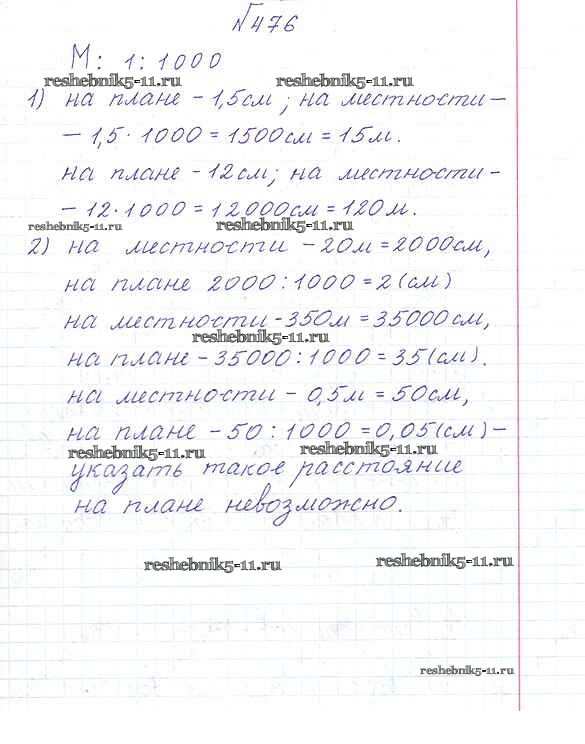 №476
М: 1:1000
reshebnik5-11.ru reshebnik5-11.ru
1) на плане - 1,5 см; на местности -
- 1,5 · 1000 = 1500 см = 15 м.
на плане - 12 см; на местности -
- 12 · 1000 = 12000 см = 120 м.
reshebnik5-11.ru reshebnik5-11.ru
2) на местности - 20 м = 2000 см,
на плане 2000 : 1000 = 2 (см)
на местности - 350 м = 35000 см,
reshebnik5-11.ru
на плане - 35000 : 1000 = 35 (см).
на местности - 0,5 м = 50 см,
на плане - 50 : 1000 = 0,05 (см) -
reshebnik5-11.ru reshebnik5-11.ru
указать такое расстояние
на плане невозможно.
reshebnik5-11.ru reshebnik5-11.ru
reshebnik5-11.ru